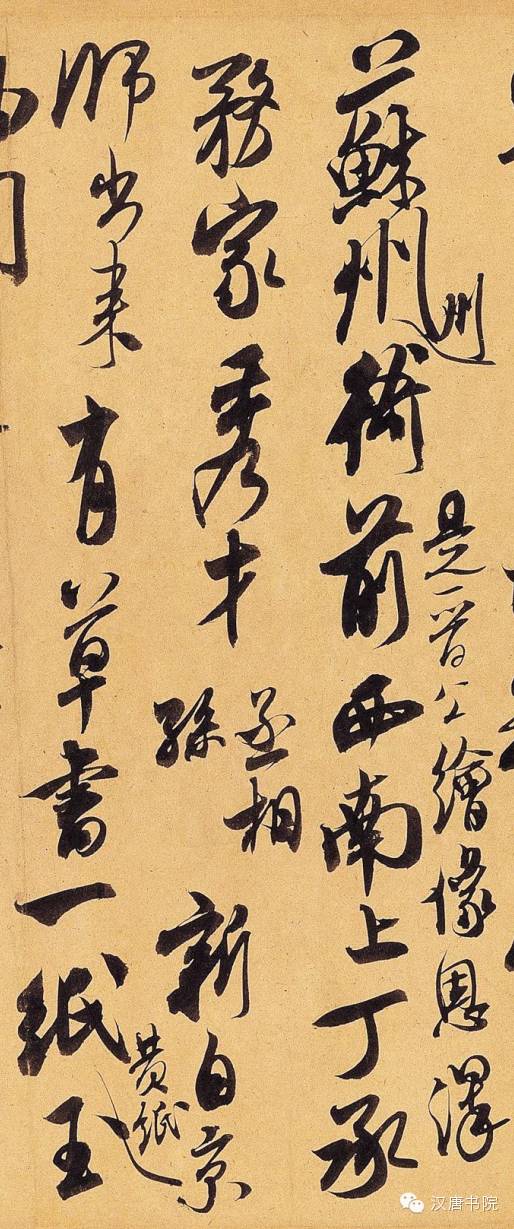 蘇州衙前西南上丁承
州
是晉公繪像恩澤
務家秀才
丞相
孫
新自京
師出來有草書一紙
黃紙
玉
汉唐书院